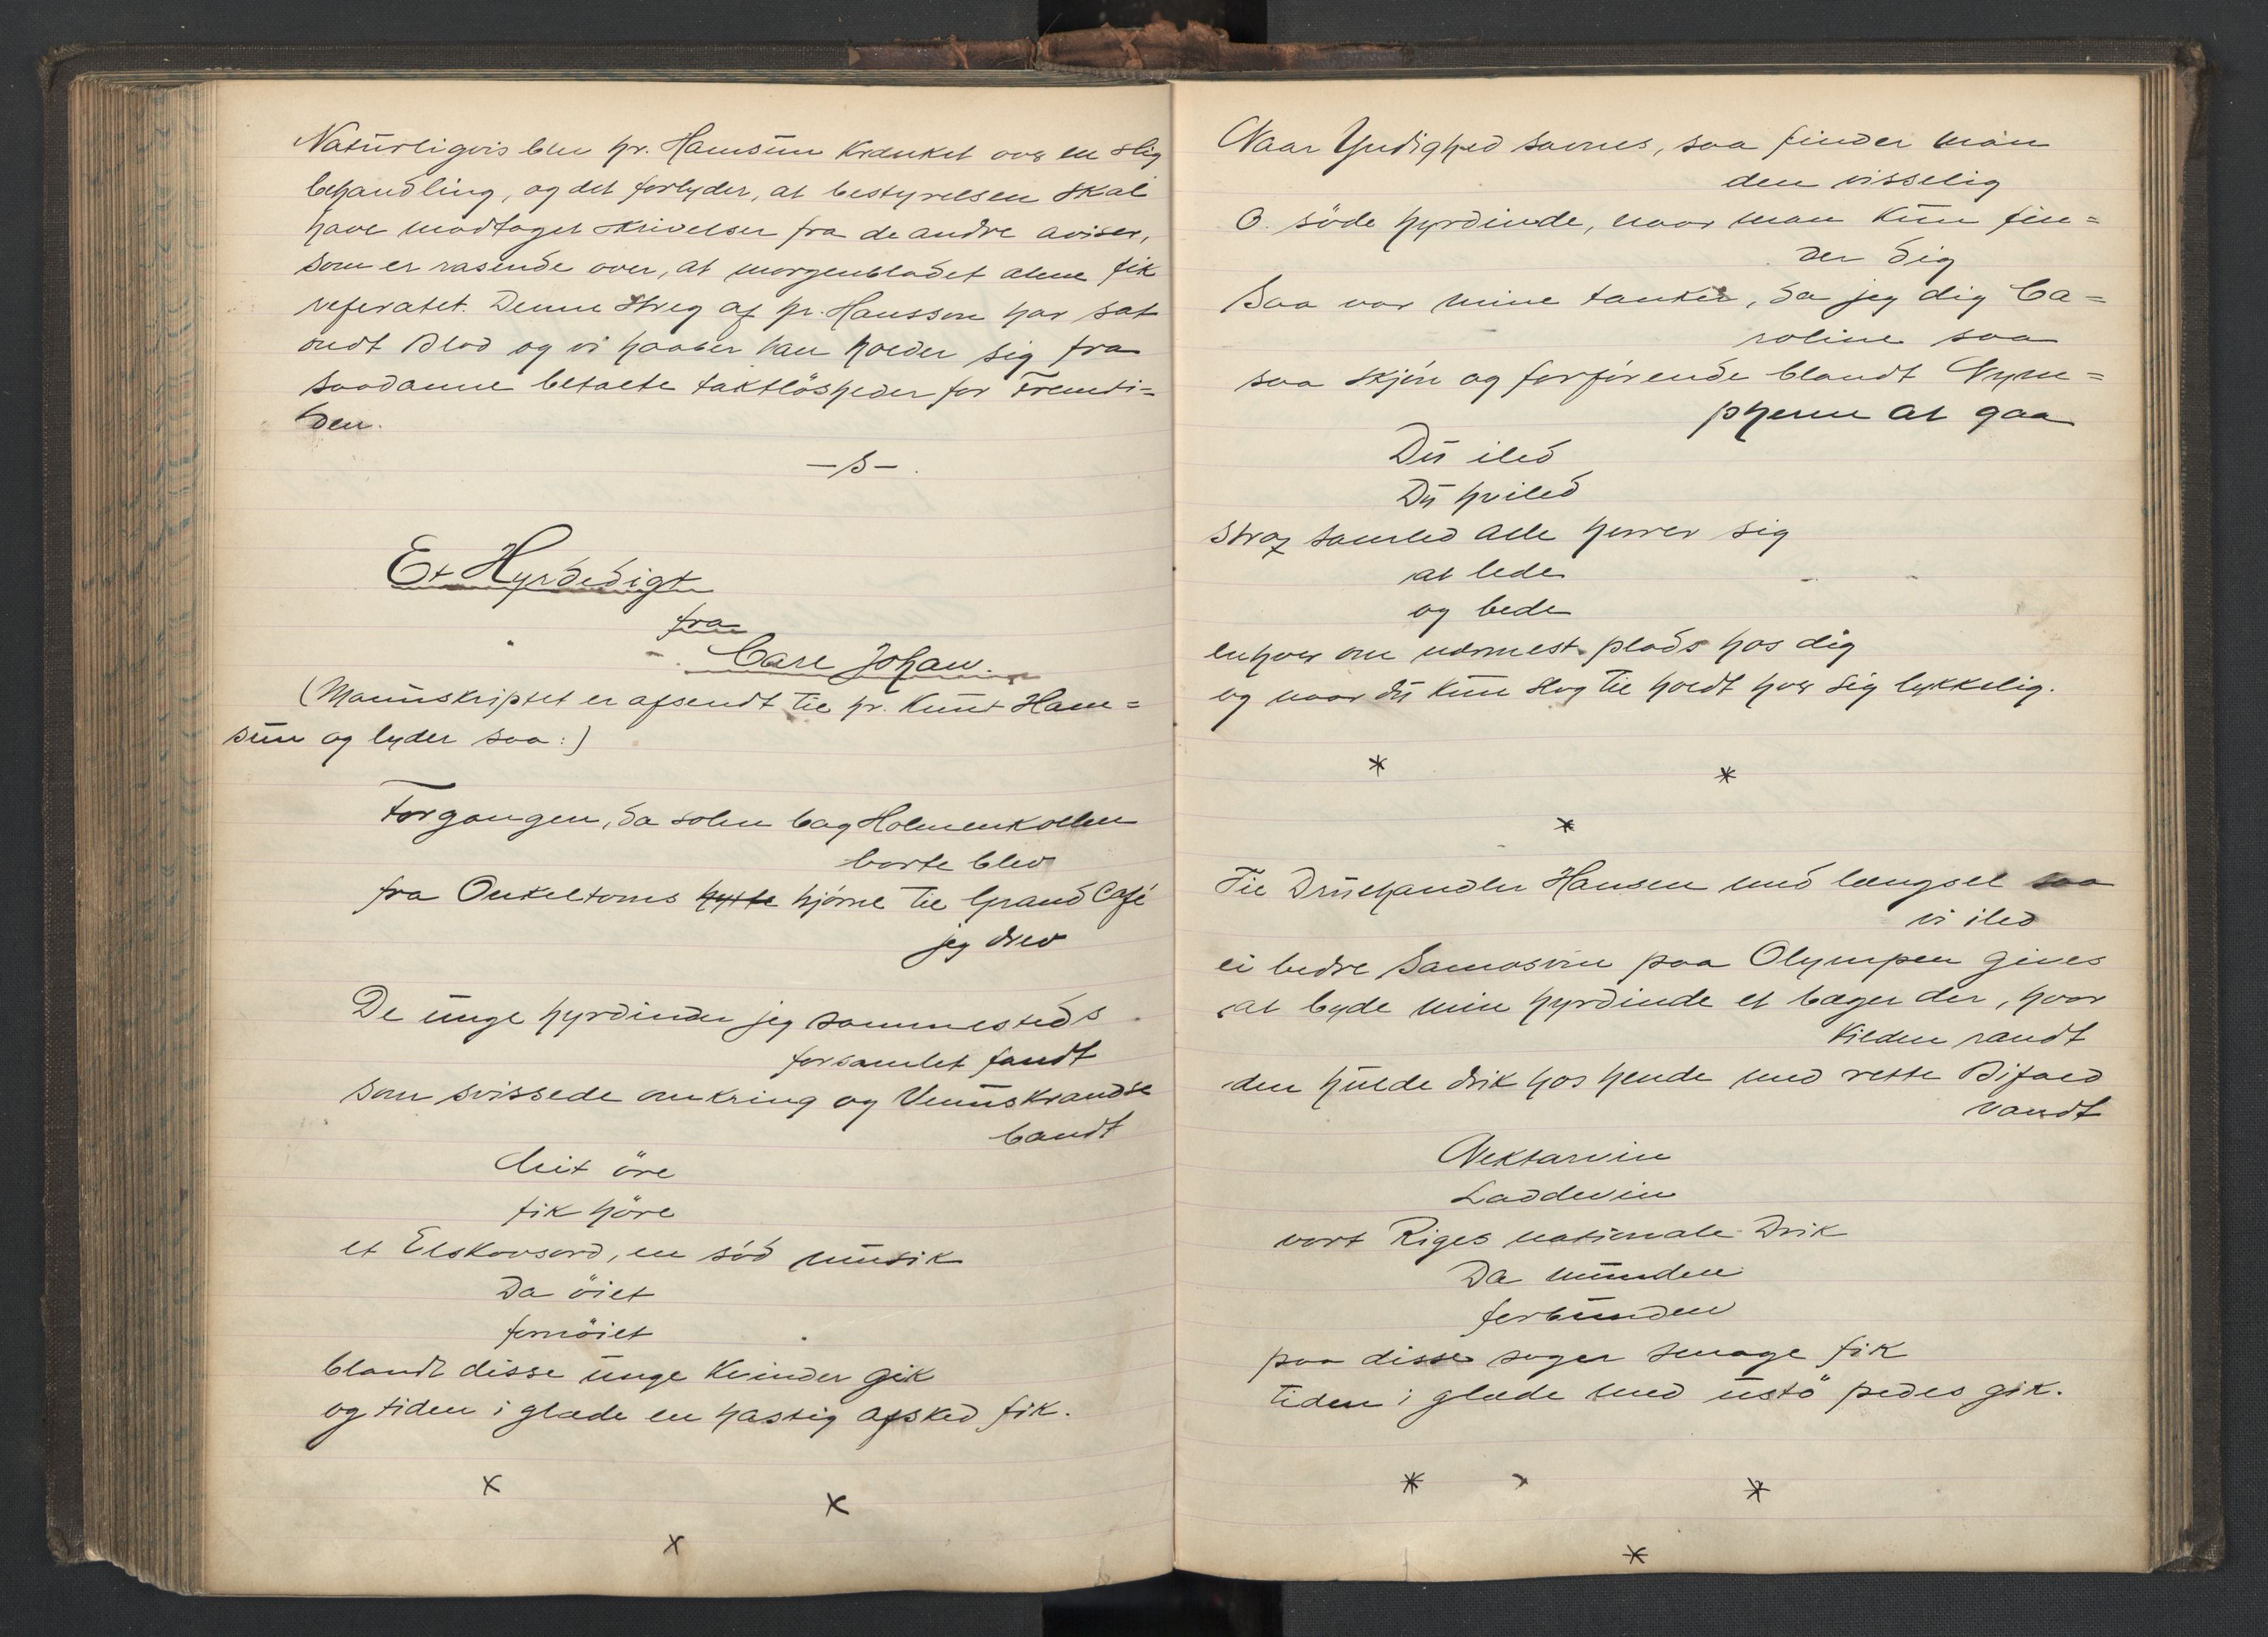 Naturligvis blev hr. Hamsun krænket over en slig
behandling, og det forlyder, at bestyrelsen skal
have modtaget skrivelser fra de andre aviser,
som er rasende over, at morgenbladet alene fik
referatet. Denne Streg af hr. Hansson har sat
ondt Blod og vi haaber han holder sig fra
saadanne betalte taktlösheder for Fremti=
den.
—s—.
Et Hyrdedigt
fra
Carl Johan.
(Manuskriptet er afsendt til hr. Knut Ham=
sun og lyder saa:)
Forgangen, da solen bag Holmenkollen
borte blev
fra Onkeltoms hytte hjörne til Grand Café
jeg drev
De unge hyrdinder jeg sammesteds
forsamlet fandt
som svissede omkring og Venuskrandse
bandt
Mit öre
fik höre
et Elskovsord, en söd musik
Da öiet
fornöiet
blandt disse unge Kvinder gik
og tiden i glæde en hastig afsked fik.
x
x
x
Naar Yndighed savnes, saa finder man
den visselig
O. söde hyrdinde, naar man kun fin=
der dig
Saa var mine tanker, da jeg dig Ca=
roline saa
saa skjön og forförende blandt Nym=
pherne at gaa
Du iled
Du hviled
Strax samled alle herrer sig
at lede
og bede
enhver om nærmest plads hos dig
og naar du kun slog til holdt hver sig lykkelig.
*
*
*
Til Druehandler Hansen med længsel saa
vi iled
ei bedre Samosvin paa Olympen gives
at byde min hyrdinde et bæger der, hvor
kilden randt
den hulde drik hos hende med rette Bifald
vandt
Nektarvin
Laddevin
vort Riges nationale Drik
Da munden
forbunden
paa disse sager smage fik
tiden i glæde med ustö pedes gik.
*
*
*